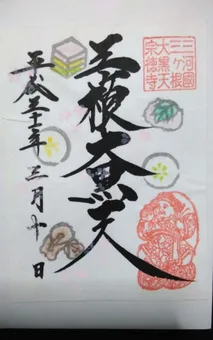 三河國
三ヶ根
大黒天
宗徳寺
三根大黒天
平成三十一年三月十日